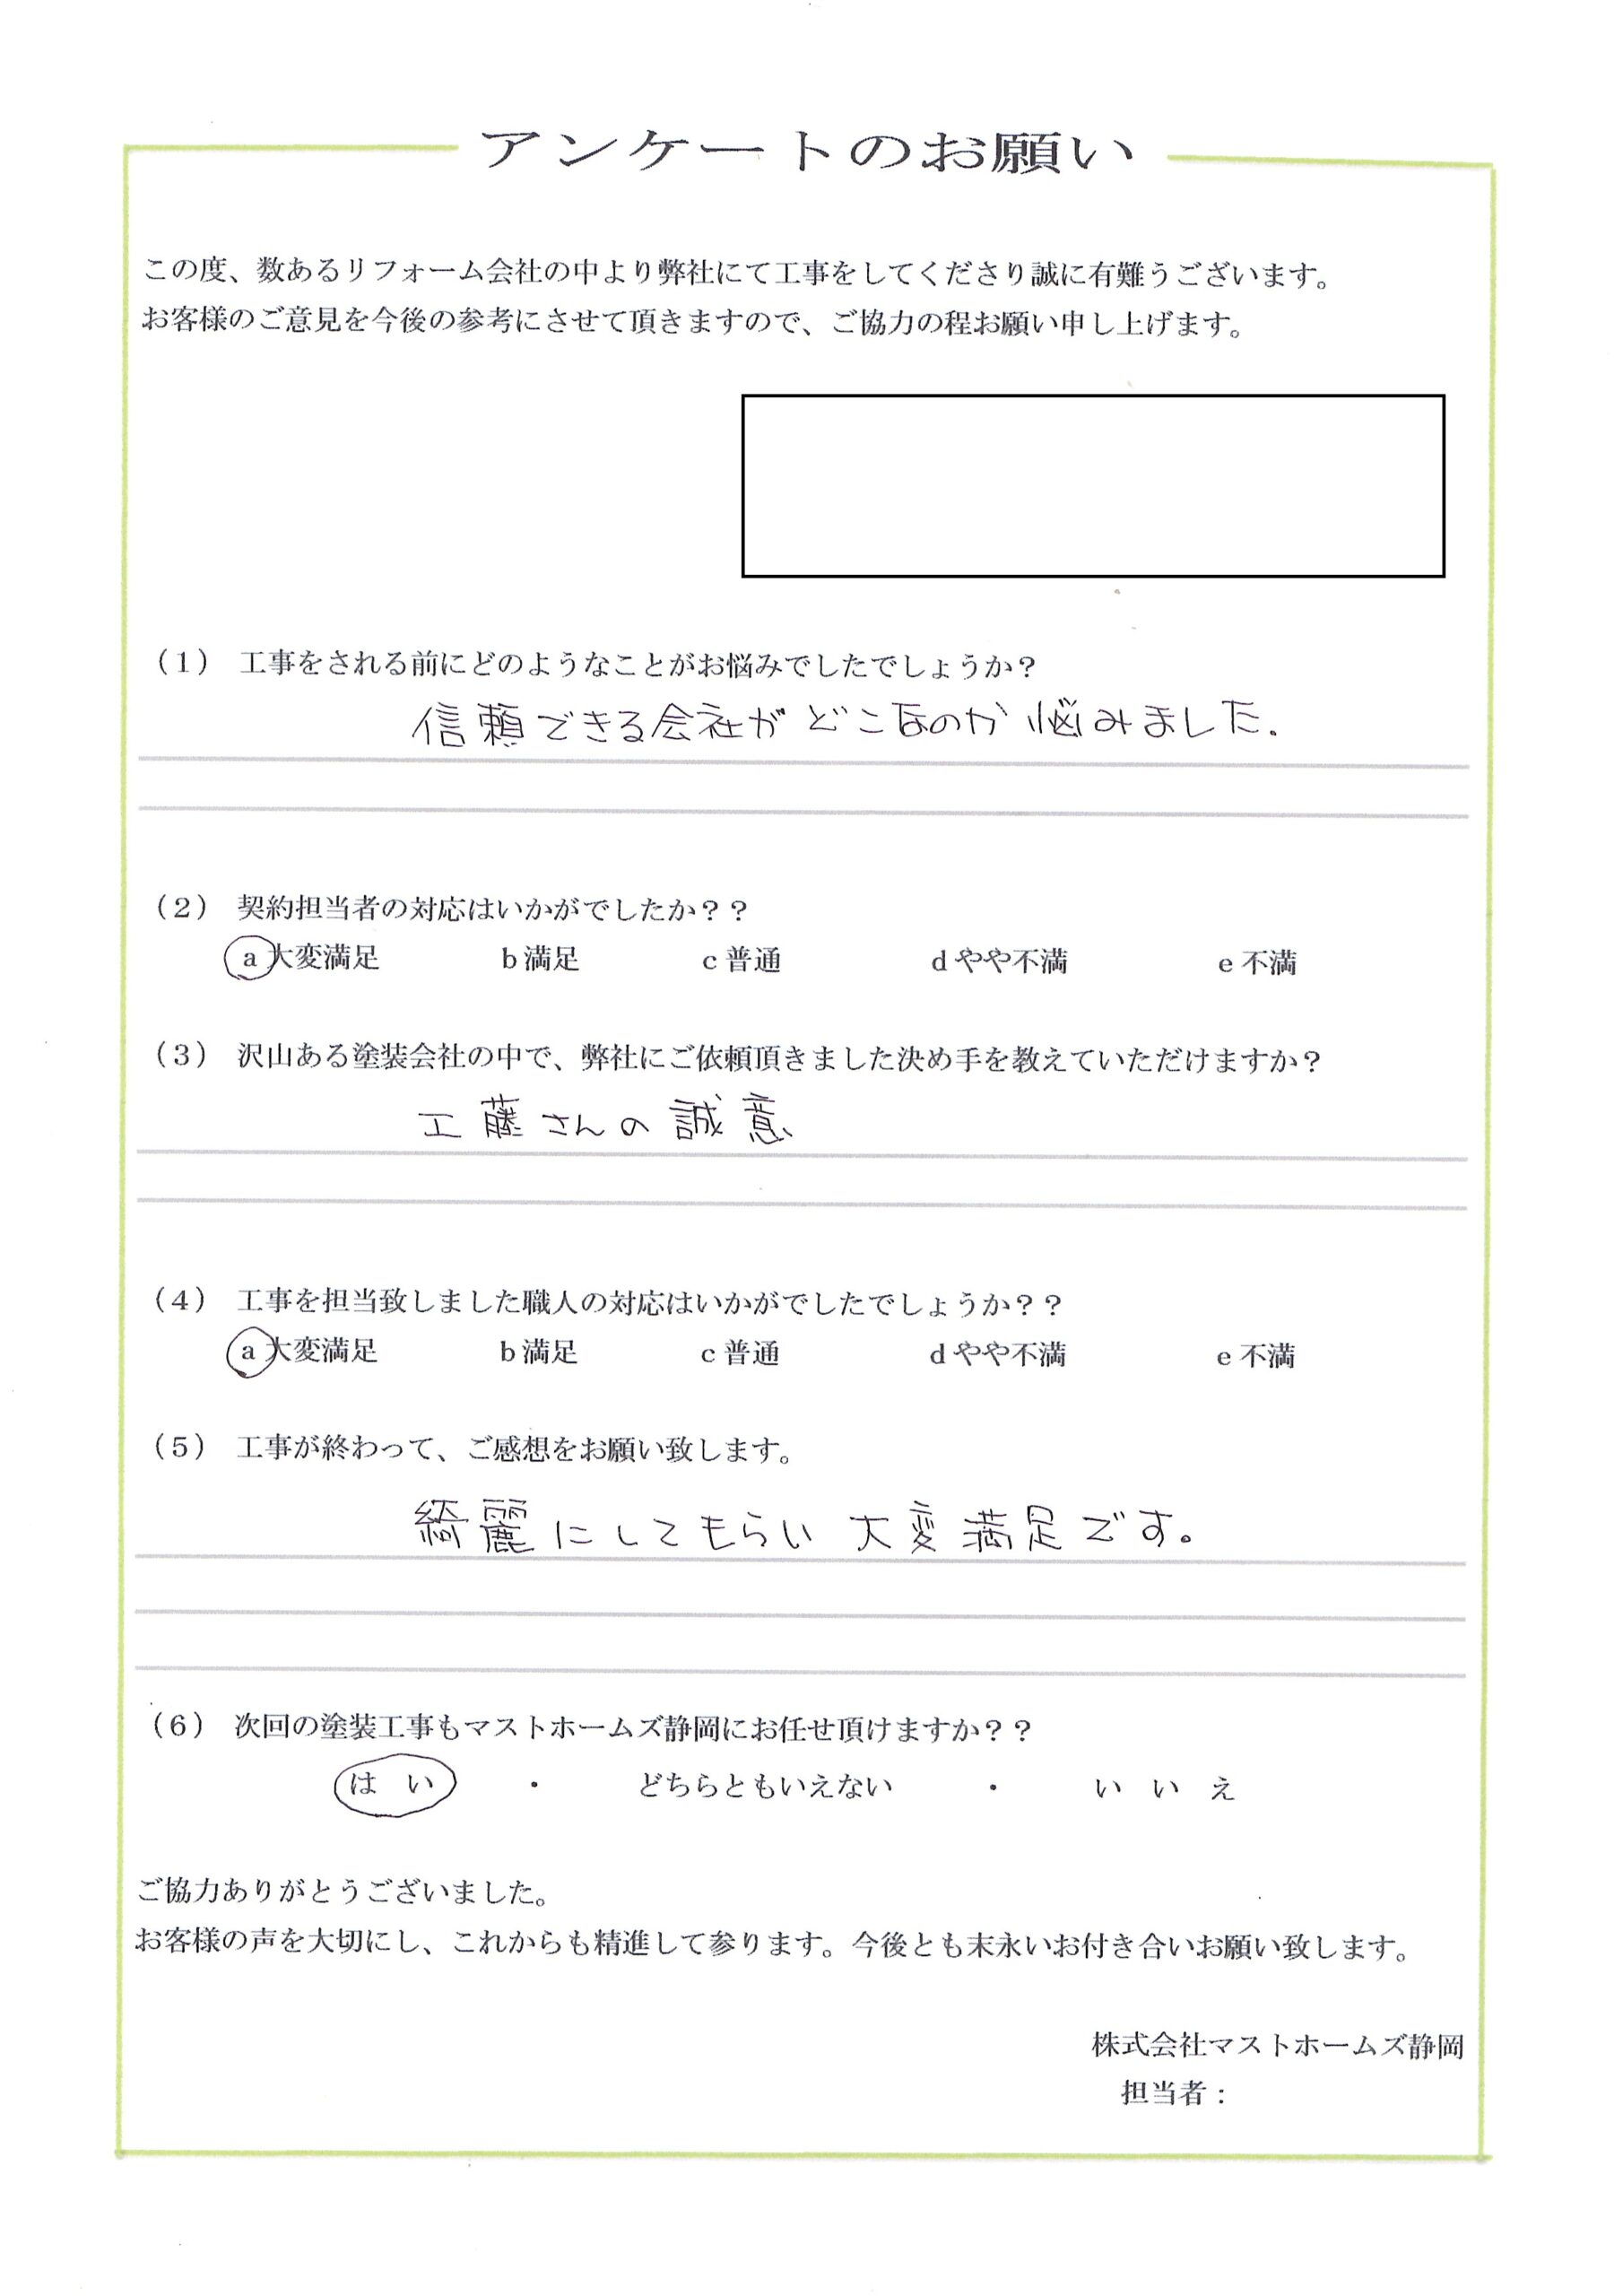 アンケートのお願い
この度、数あるリフォーム会社の中より弊社にて工事をしてくださり誠に有難うございます。
お客様のご意見を今後の参考にさせて頂きますので、ご協力の程お願い申し上げます。
（1） 工事をされる前にどのようなことがお悩みでしたでしょうか？
信頼できる会社がどこなのか悩みました.
（2） 契約担当者の対応はいかがでしたか？？
a 大変満足 b 満足 c 普通 d やや不満 e 不満
（3） 沢山ある塗装会社の中で、弊社にご依頼頂きました決め手を教えていただけますか？
工藤さんの誠意
（4） 工事を担当致しました職人の対応はいかがでしたでしょうか？？
a 大変満足 b 満足 c 普通 d やや不満 e 不満
（5） 工事が終わって、ご感想をお願い致します。
綺麗にしてもらい 大変満足です。
（6） 次回の塗装工事もマストホームズ静岡にお任せ頂けますか？？
は い ・ どちらともいえない ・ い い え
ご協力ありがとうございました。
お客様の声を大切にし、これからも精進して参ります。今後とも末永いお付き合いお願い致します。
株式会社マストホームズ静岡
担当者：